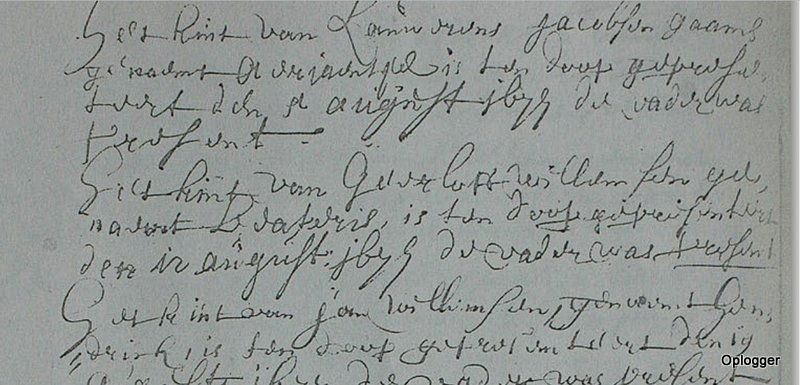 Het kint van Lauwerens Jacobsen gaams
genaemt is ten doop gepresen
teert den 5 augusti 1675 de vader was
present
Het kint van Geerloff willemsen ge,
naemt Beateris, is ten doop gepresenteert
den 12 augusti: 1675 de vader was present
Het kint van Jan Willemsen, genaemt Hen,
drick, is ten doop gepresenteert den 19
de vader was present
Oplogger